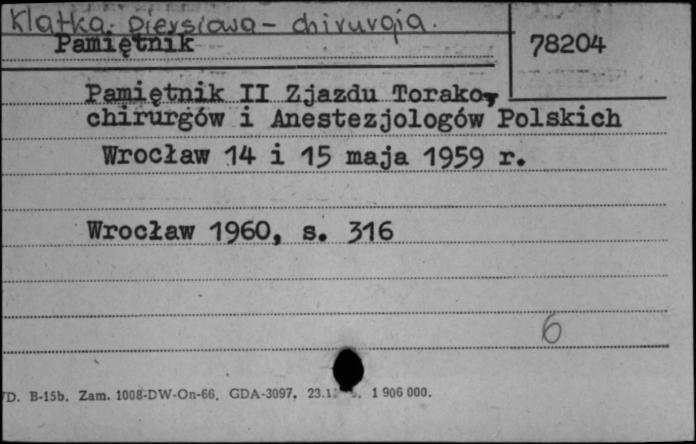 Klatka piersiowa - chirurgia.
Pamiętnik
78204
Pamiętnik II Zjazdu Torako-
chirurgów i Anestezjologów Polskich
Wrocław 14 i 15 maja 1959 r.
Wrocław 1960, s. 316
6
D. B-15b. Zam. 1008-DW-On-66. GDA-3097. 1 906 000.